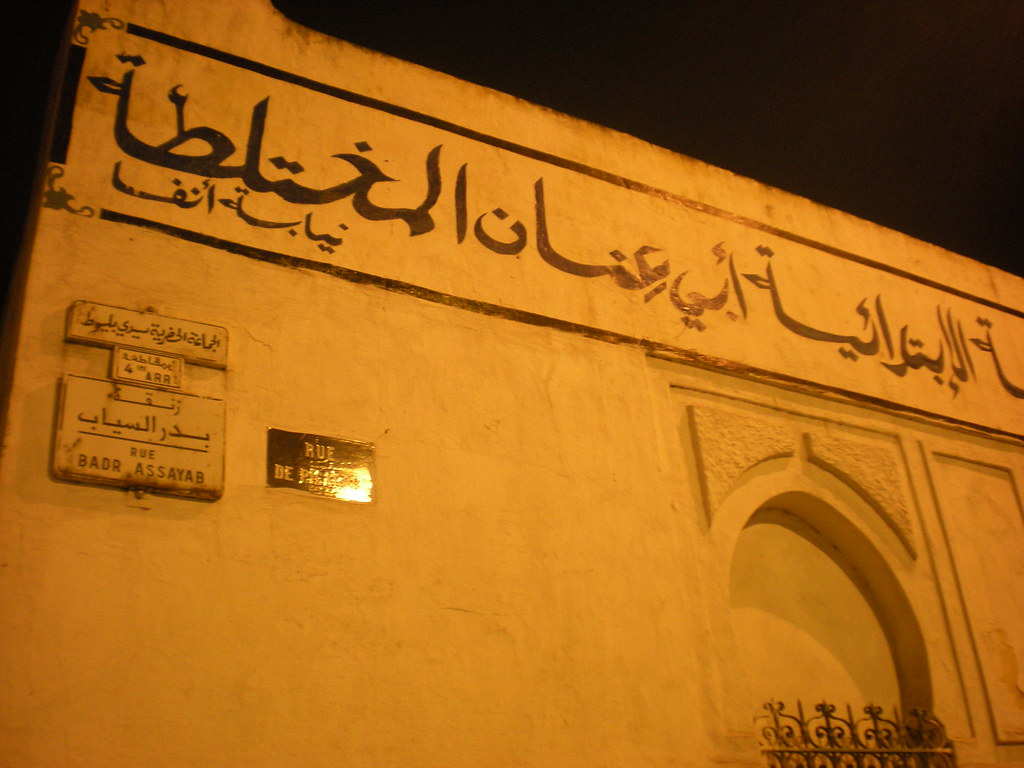 الإبتدائية أبي عنان المختلطة
نيابة أنفا
الجماعة الحضرية سيدي بليوط
مقاطعة
4 ARR
زنقة
بدر السياب
RUE
BADR ASSAYAB
RUE
DE